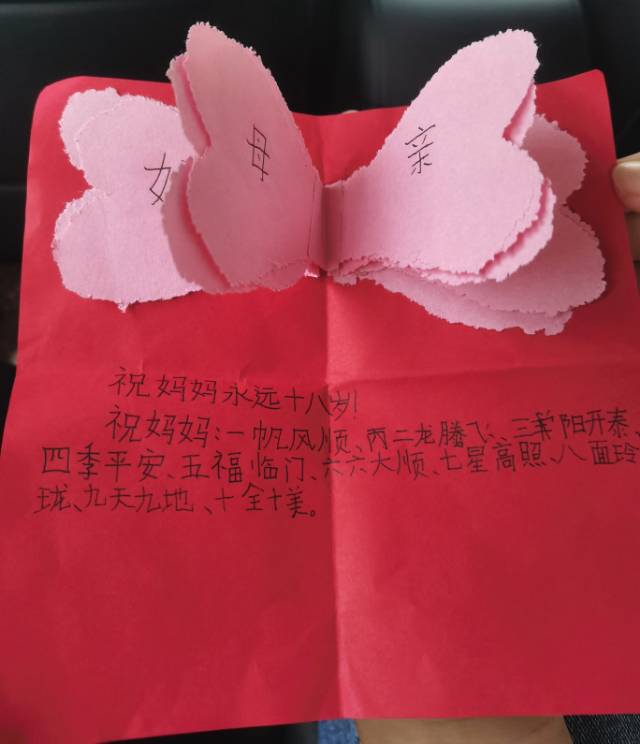 母亲
祝妈妈永远十八岁！
祝妈妈：一帆风顺、丙二龙腾飞、三阳开泰、
四季平安、五福临门、六六大顺、七星高照、八面玲
珑、九天九地、十全十美。